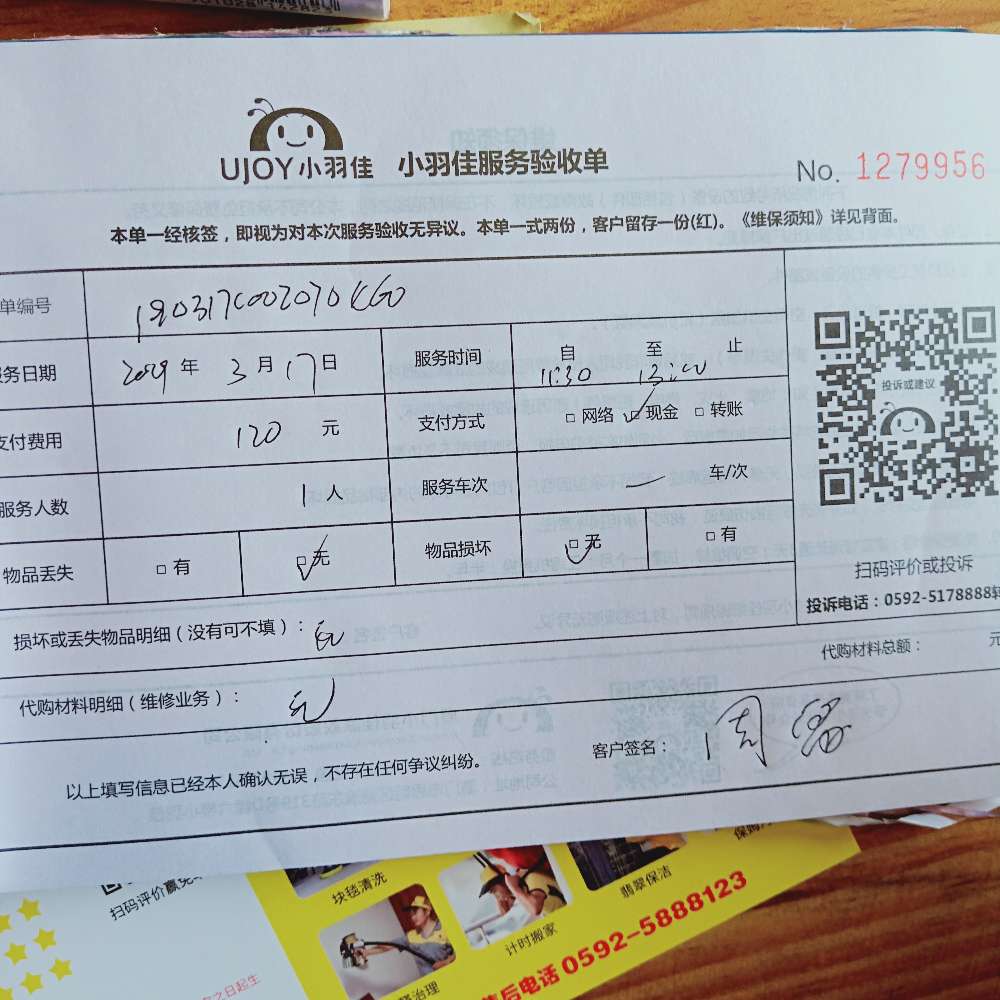 UJOY小羽佳 小羽佳服务验收单 No. 1279956
本单一经核签，即视为对本次服务验收无异议。本单一式两份，客户留存一份(红)。《维保须知》详见背面。
单编号
服务日期 年 3 月 17 日 服务时间 自 11:30 至 13:00 止
支付费用 120 元 支付方式 □ 网络 □ 现金 □ 转账
服务人数 1 人 服务车次 车/次
物品丢失 □ 有 □ 无 物品损坏 □ 无 □ 有
投诉或建议
扫码评价或投诉
投诉电话：0592-5178888转
损坏或丢失物品明细（没有可不填）：无
代购材料总额： 元
代购材料明细（维修业务）：无
以上填写信息已经本人确认无误，不存在任何争议纠纷。 客户签名：周
扫码评价赢免
块毯清洗
翡翠保洁
计时搬家
治理
售后电话 0592-5888123
之日起生